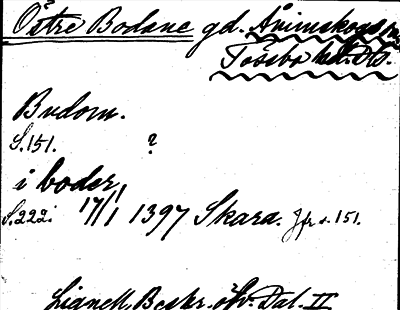 Östre Bodane gd. Ånimskogs sn
Tössbo hd. Ds.
Budom.
S. 151. ?
i boder,
S. 222: 17/1 1397 Skara. Jfr s. 151.
Lignell, Beskr. öfv. Dal. II